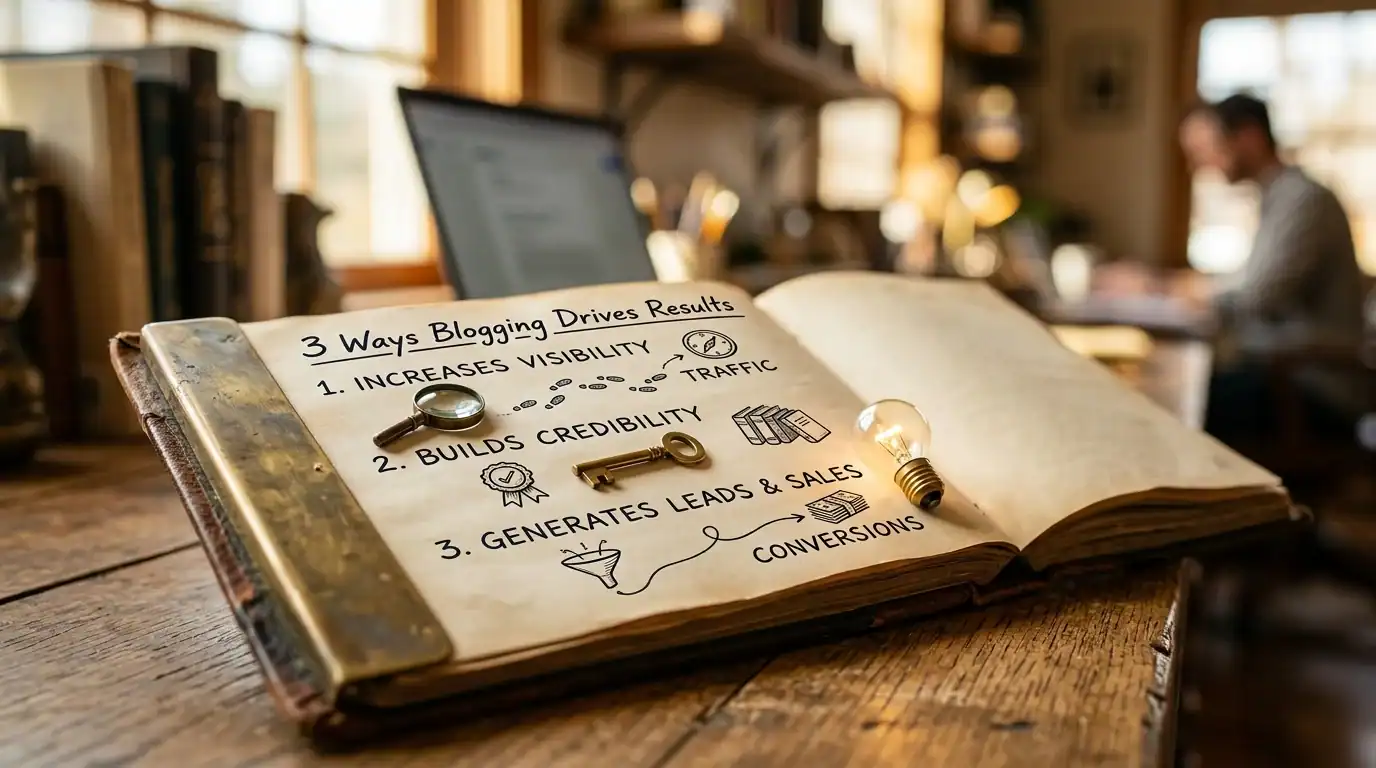 3 Ways Blogging Drives Results
1. INCREASES VISIBILITY
TRAFFIC
2. BUILDS CREDIBILITY
3. GENERATES LEADS & SALES
CONVERSIONS